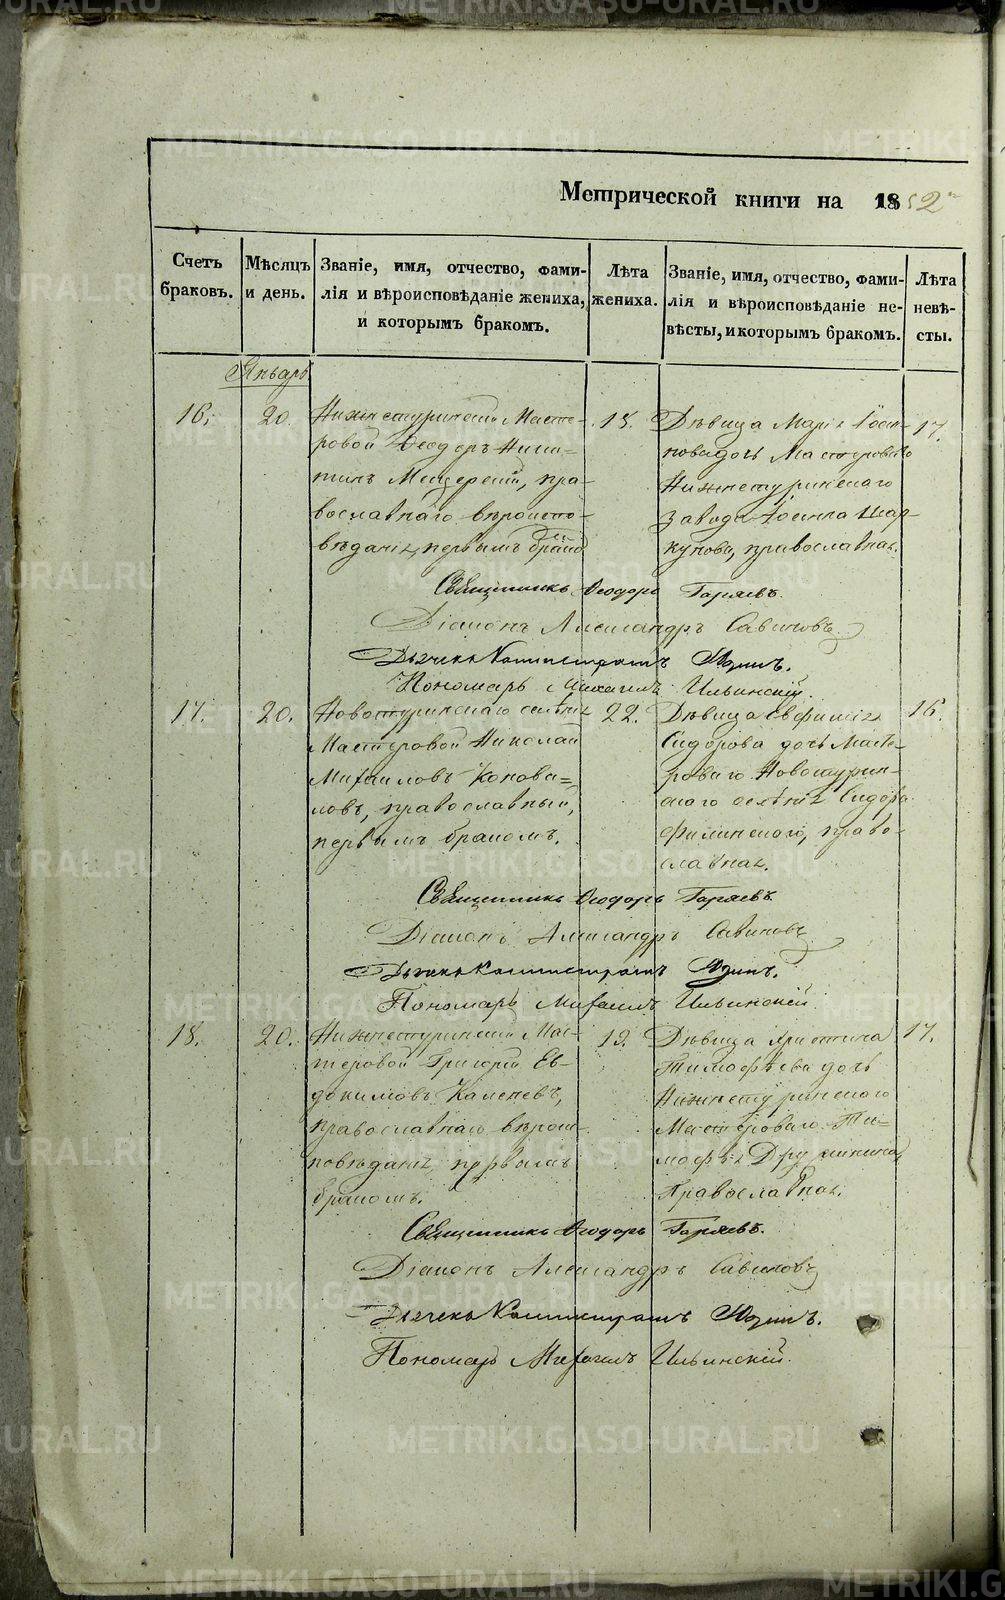 Метрической книги на 1852
Счетъ браковъ.
Мѣсяцъ и день.
Званіе, имя, отчество, фами-
лія и вѣроисповѣданіе жениха,
и которымъ бракомъ.
Лѣта жениха.
Званіе, имя, отчество, фами-
лія и вѣроисповѣданіе не-
вѣсты, и которымъ бракомъ.
Лѣта невѣ-
сты.
Январь
16.
20.
Нижнетуринскій Масте-
ровой Ѳеодоръ Ники-
тинъ Мещерскій, пра-
вославнаго вѣроиспо-
вѣданія, первымъ
Дѣвица Марія
дочь Мастероваго
Нижнетуринскаго
завода
православная.
17.
Священникъ Ѳеодоръ Горяевъ.
Діаконъ Александръ Савиновъ
Дьячекъ Каллистратъ Юдинъ.
Пономарь Михаилъ Ильинскій.
17.
20.
Новотуринскаго селенія
Мастеровой Николай
Михаиловъ Конова-
ловъ, православный,
первымъ бракомъ.
22.
Дѣвица Евфимія
Сидорова дочь Масте-
роваго Новотурин-
скаго селенія Сидора
Филинскаго, право-
славная.
16.
Священникъ Ѳеодоръ Горяевъ.
Діаконъ Александръ Савиновъ
Дьячекъ Каллистратъ Юдинъ.
Пономарь Михаилъ Ильинскій
18.
20.
Нижнетуринскій Мас-
теровой Григорій Ев-
докимовъ Каменевъ,
православнаго вѣроис-
повѣданія, первымъ
бракомъ.
19.
Дѣвица Христина
Тимофѣева дочь
Нижнетуринскаго
Мастероваго Ти-
мофѣя Дружинина,
Православная.
17.
Священникъ Ѳеодоръ Горяевъ.
Діаконъ Александръ Савиновъ
Дьячекъ Каллистратъ Юдинъ.
Пономарь Михаилъ Ильинскій.
METRIKI.GASO-URAL.RU